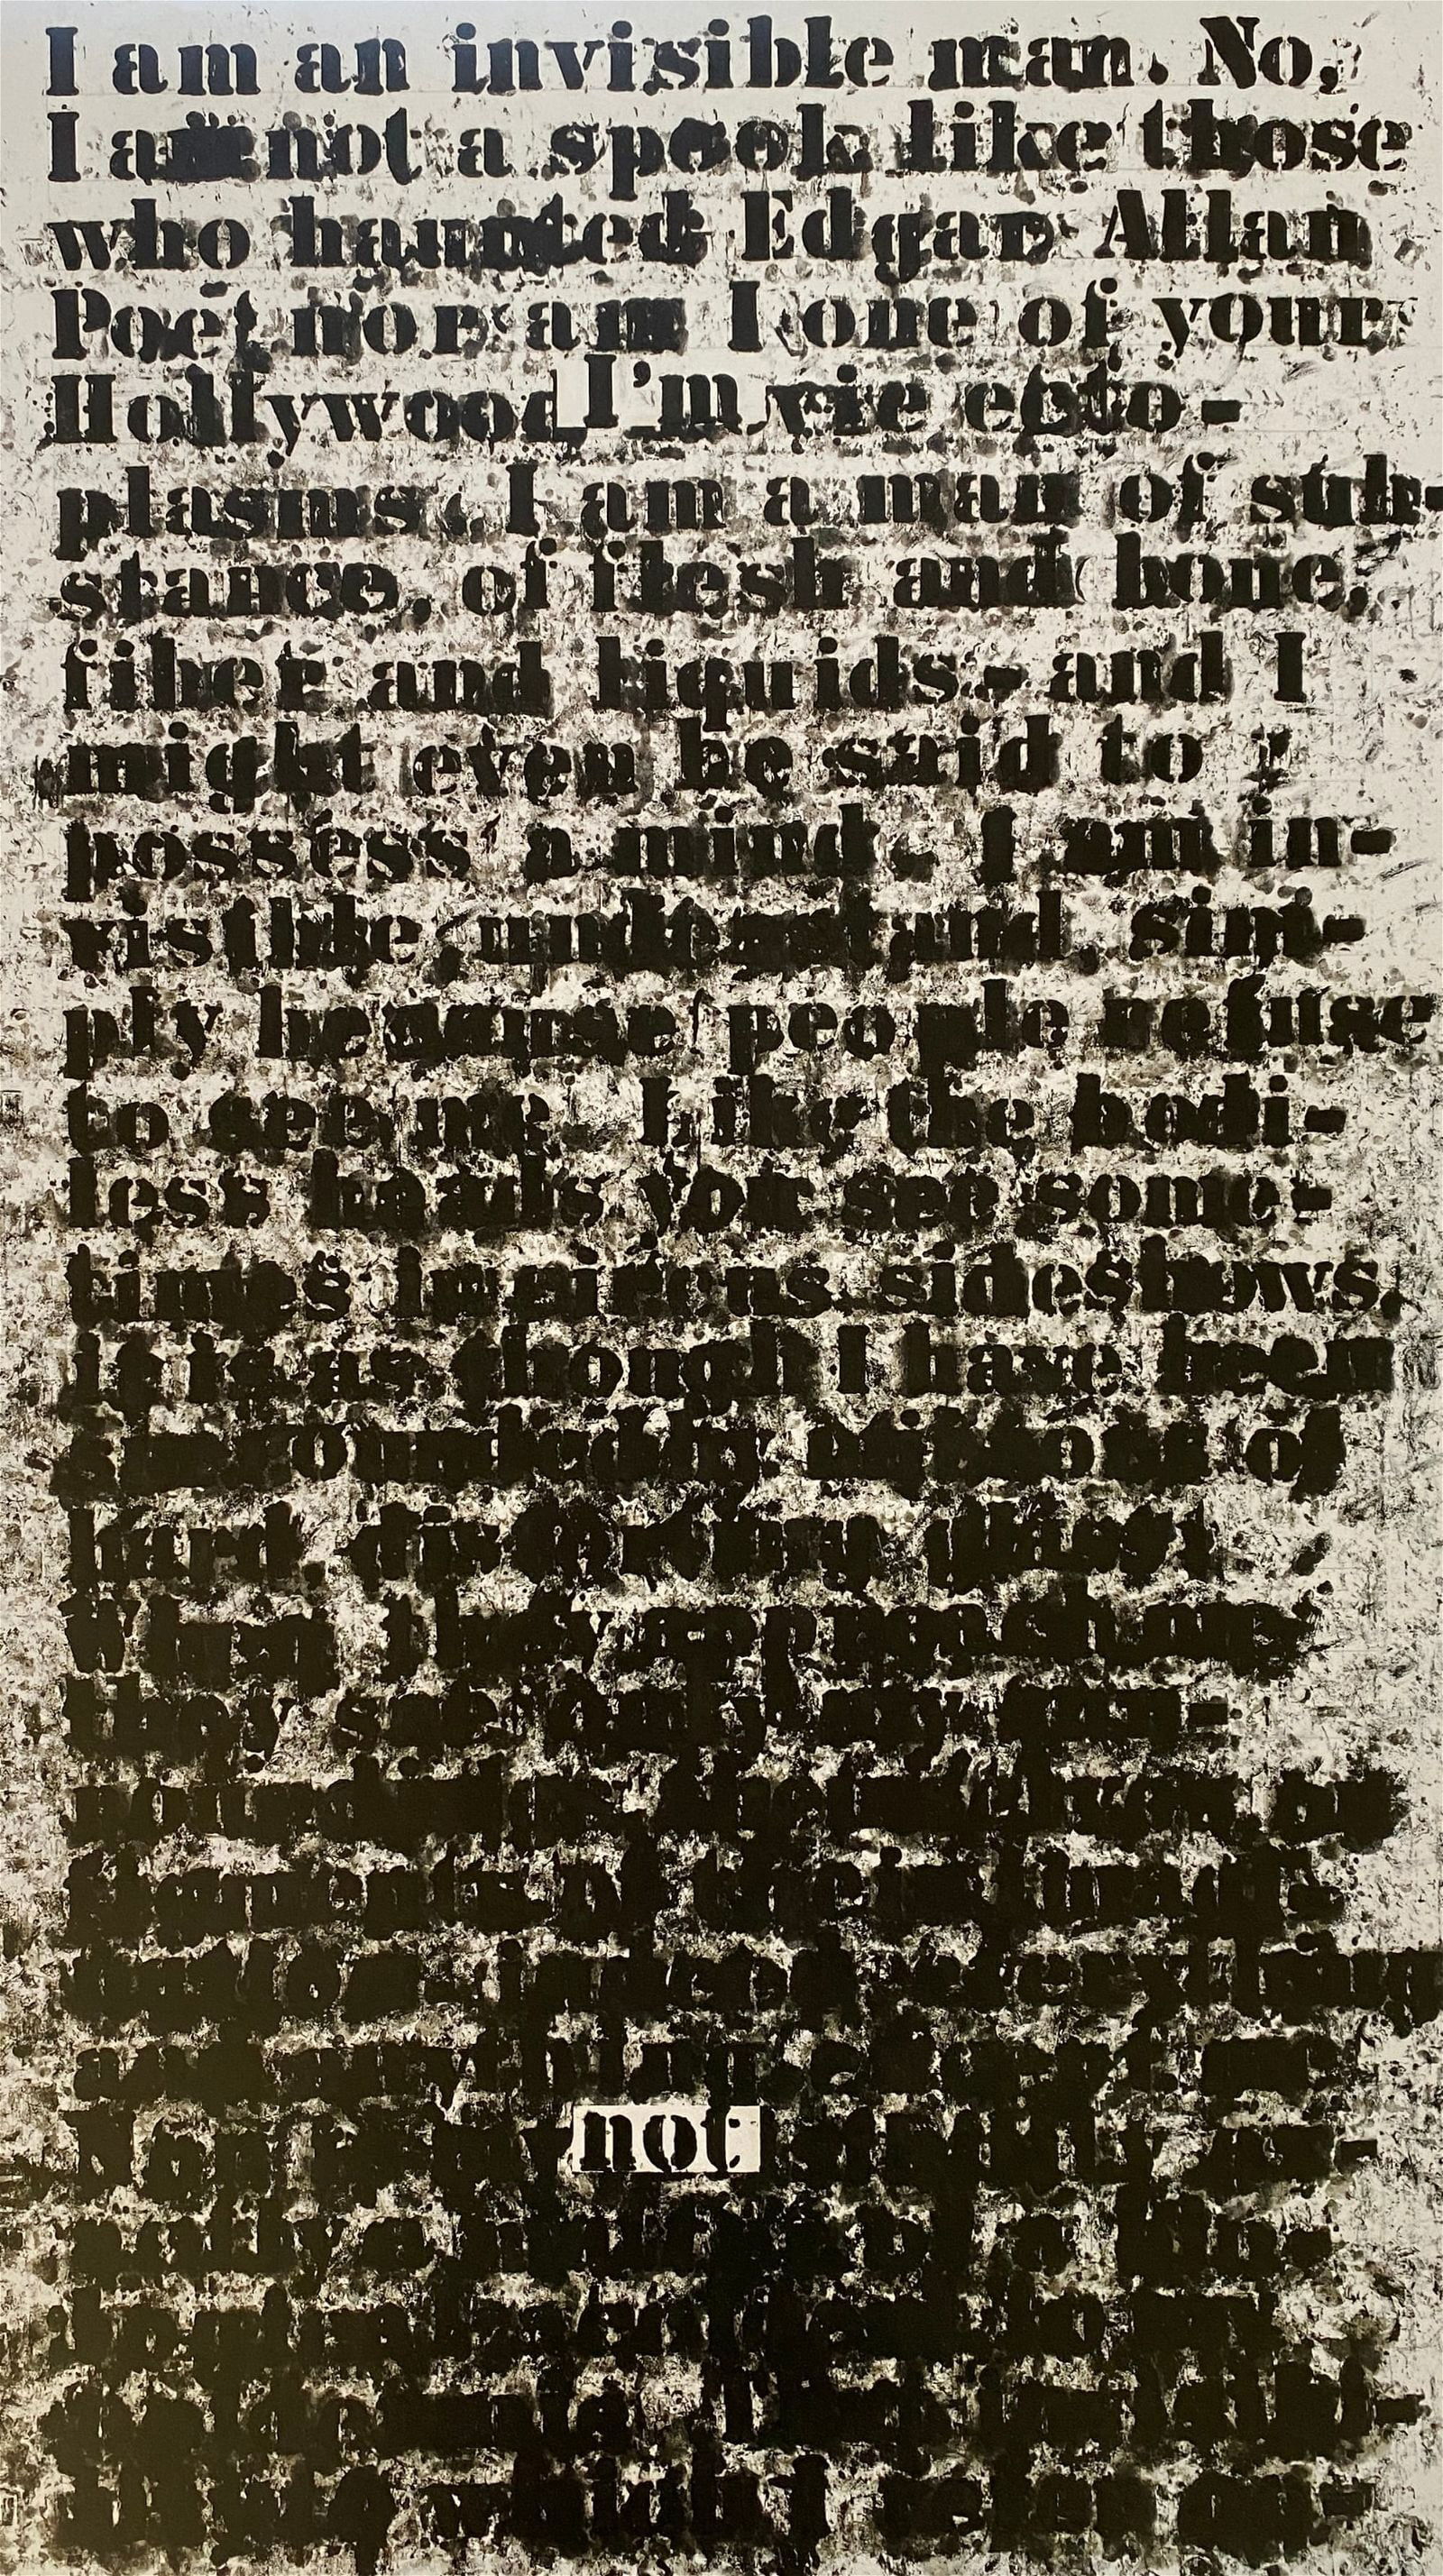 I am an invisible man. No,
I am not a spook like those
who haunted Edgar Allan
Poe; nor am I one of your
Hollywood I'm vie ecto-
plasms. I am a man of sub-
stance, of flesh and bone,
fiber and liquids - and I
might even be said to
possess a mind. I am in-
visible, understand, sim-
ply because people refuse
to see me. Like the bodi-
less heads you see some-
times in circus sideshows,
it is as though I have been
surrounded by mirrors of
hard, distorting glass.
When they approach me
they see only my sur-
roundings, themselves, or
figments of their imagi-
nation - indeed, everything
and anything except me.
Nor is my not